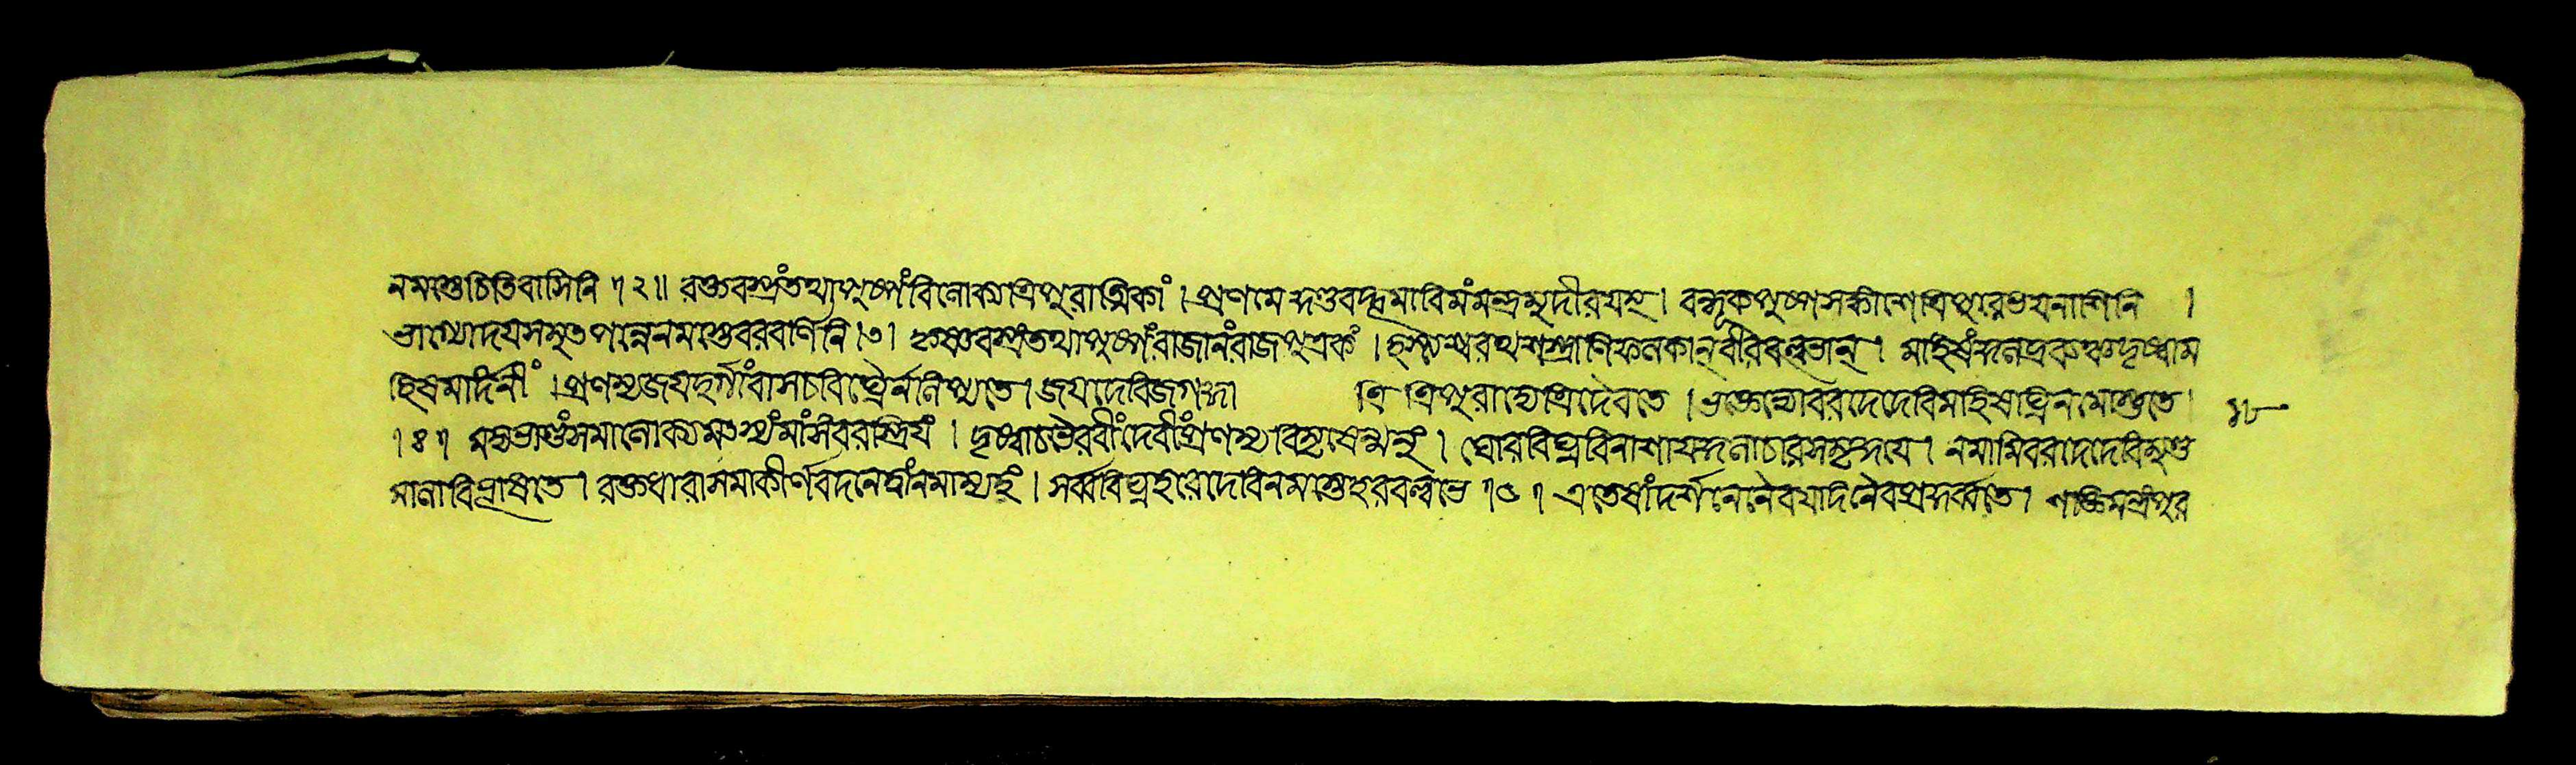 নমোস্তু চিতিবাসিনি ৷ ২ ॥ রক্তবস্ত্রং তথা পুষ্পং বিলোক্য ত্রিপুরাত্মিকাং । প্রণমেদ্দণ্ডবদ্ভূমাবিমং মন্ত্রমুদীরয়েৎ । বন্ধূকপুষ্পসঙ্কাশে ত্রিপুরে ভয়নাশিনি ।
ভাগ্যোদয়সমুৎপন্নে নমোস্তু বরবর্ণিনি । ৩ । কৃষ্ণবস্ত্রং তথা পুষ্পং রাজানং রাজপুত্রকং । হস্ত্যশ্বরথশস্ত্রাণি ফলকান্ বীরবল্লভান্ । মাহিষং কুলদেবঞ্চ দৃষ্ট্বা ম
হিষমর্দিনীং । প্রণম্য জয়দুর্গাং বা স চ বিঘ্নৈর্ন লিপ্যতে । জয় দেবি জগদ্ধা ত্রি ত্রিপুরাদ্যে ত্রিদৈবতে । ভক্তেভ্যো বরদে দেবি মহিষঘ্নি নমোস্তুতে ৪৮
৷ ৪ ৷ মদ্যভাণ্ডং সমালোক্য মৎস্যং মাংসং বরস্ত্রিয়ং । দৃষ্ট্বা চ ভৈরবীং দেবীং প্রণম্য বিমৃষেন্মনুং । ঘোরবিঘ্নবিনাশায় কুলাচারসমৃদ্ধয়ে । নমামি বরদে দেবি মুণ্ড
মালাবিভূষিতে । রক্তধারাসমাকীর্ণবদনে ত্বাং নমাম্যহং । সর্ব্ববিঘ্নহরে দেবি নমস্তে হরবল্লভে ৷ ৫ ৷ এতেষাং দর্শনেনৈব যদি নৈবং প্রকুর্ব্বতে । শক্তিমন্ত্রং পুর